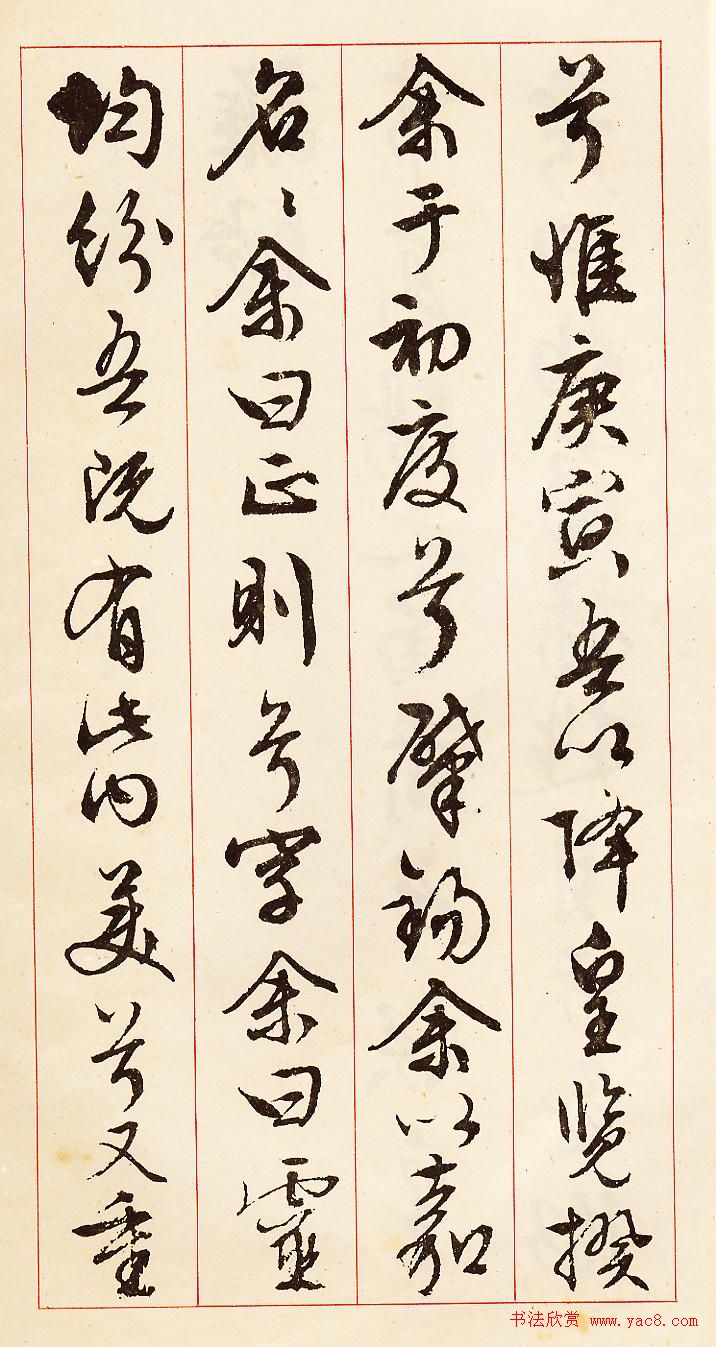 兮惟庚寅吾以降皇览揆
余于初度兮肇锡余以嘉
名〻余曰正则兮字余曰靈
均纷吾既有此内美兮又重
书法欣赏 www.yac8.com